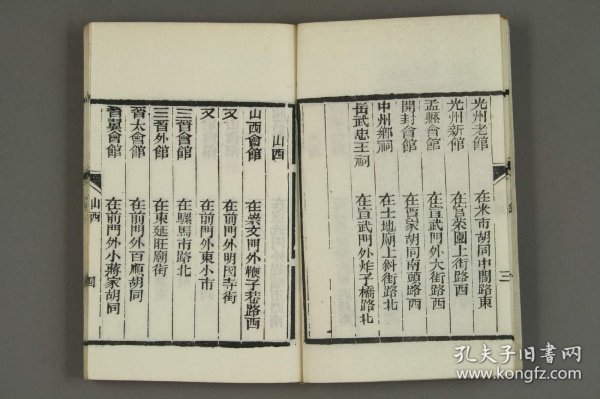 光州老館　在米市胡同中間路東
光州新館　在官菜園上街路西
孟縣會館　在宣武門外大街路西
開封會館　在賈家胡同南頭路西
中州鄉祠　在土地廟上斜街路北
岳武忠王祠　在宣武門外炸子橋路北
三
山西
山西會館　在崇文門外鞭子巷路西
又　在前門外明因寺街
又　在前門外東小市
三晉會館　在騾馬市路北
三晉外館　在東延旺廟街
晉太會館　在前門外百順胡同
晉翼會館　在前門外小蔣家胡同
山西
四
孔夫子旧书网
www.kongfz.com